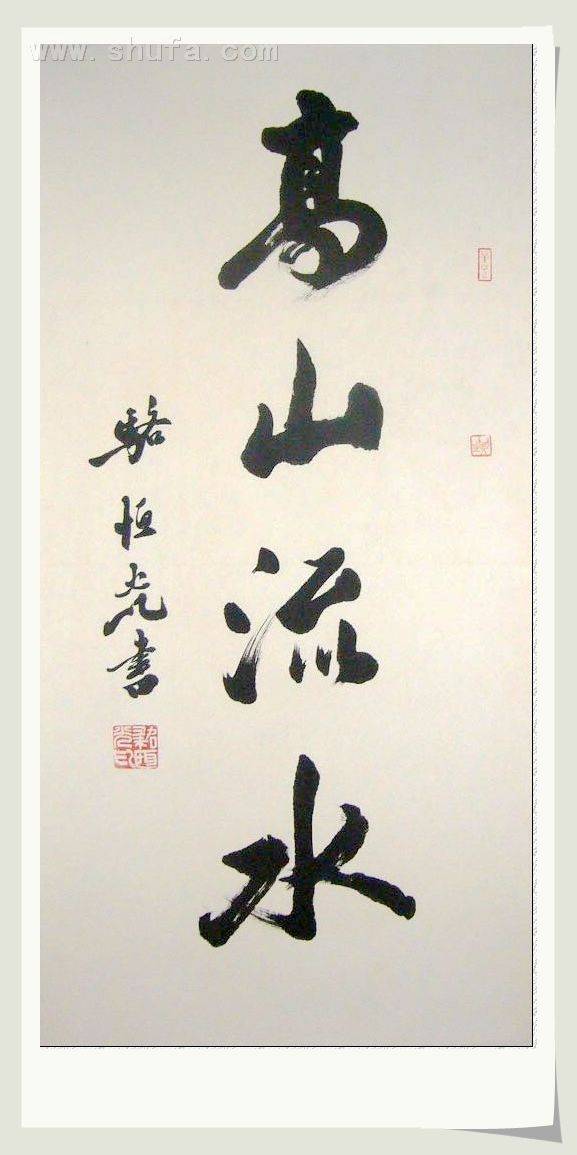 www.shufa.com
高山流水
駱恒光書